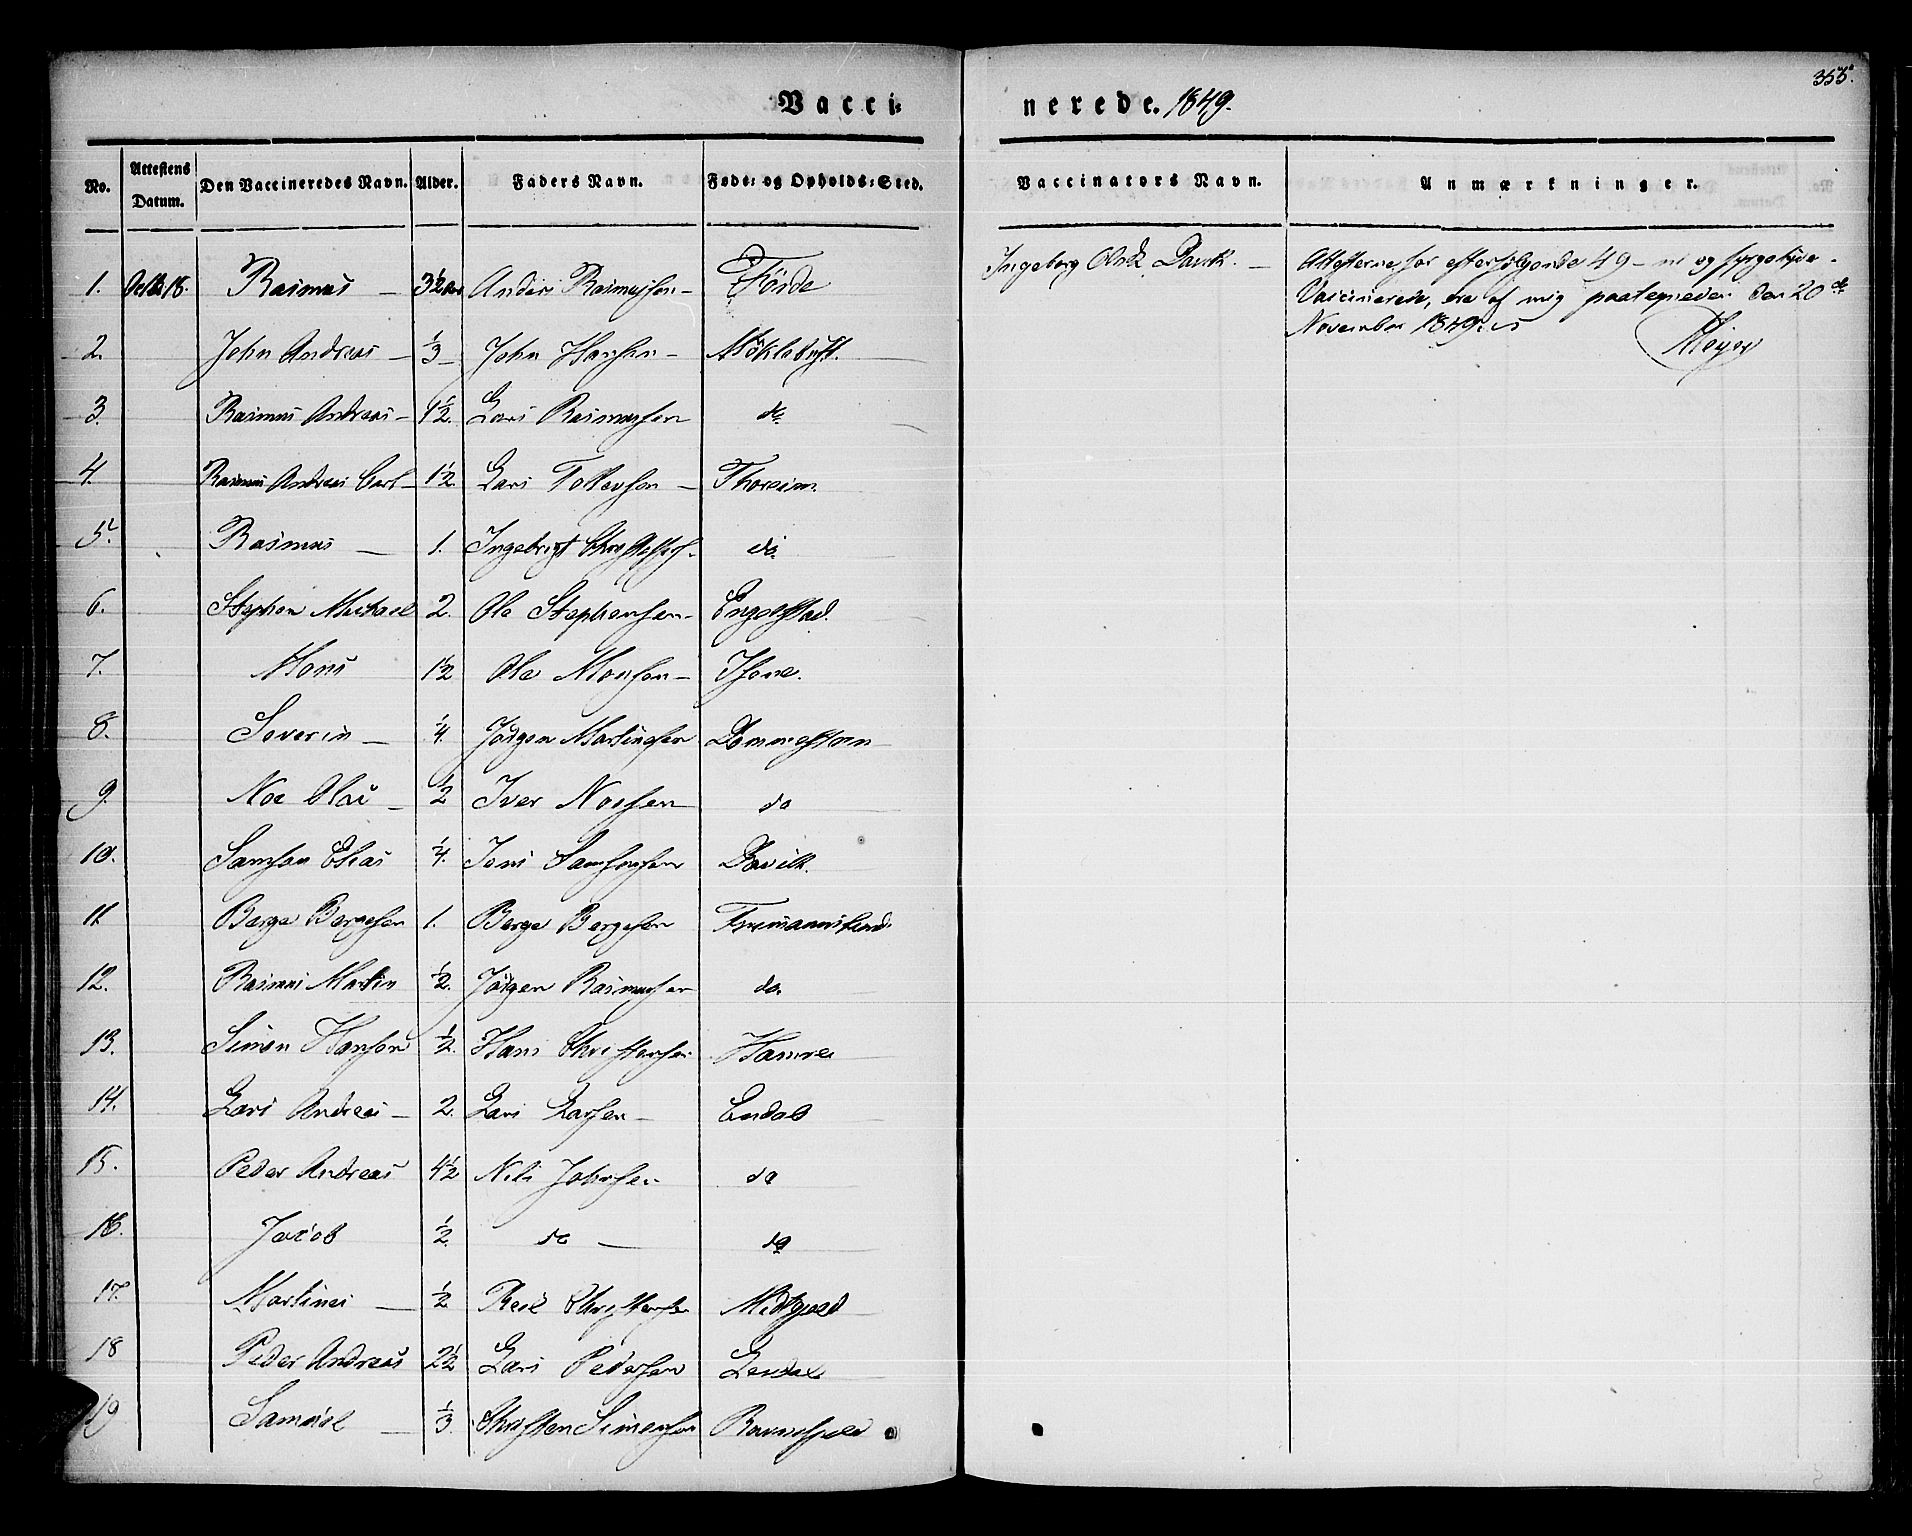 355.
Vacci- nerede. 1849.
No. Attestens Datum. Den Vaccineredes Navn. Alder. Faders Navn. Føde- og Opholds-Sted. Vaccinators Navn. Anmærkninger.
1. 18. Rasmus — 3½ Anders Rasmussen — Förde Ingeborg — Attesterne for efterfølgende 49 — ni og fyrgetyve — 
Vaccinerede, ere af mig paategnede den 20de
November 1849.
Meyer
2. John Andreas — ⅓ — John Hansen — Möklebust.
3. Rasmus Andreas — 1½. Lars Rasmussen do
4. Rasmus Andreas Carl — 1½. Lars Tollevsen — Thoreim.
5. Rasmus — 1. Ingebrigt do
6. Stephen Michael 2. Ole Stephensen — Engelstad.
7. Mons 1½ Ole Monsen —
8. Severin — ¼. Jörgen Martinesen Dommesteen
9. Noe Olai — ½ Iver Noesen do
10. Samson Elias ¼. Jons Samsonsen Davik.
11 Berge Bergesen 1. Berge Bergesen
12. Rasmus Martin ½. Jörgen Rasmussen do.
13. Simon Hansen ½. Hans Christensen Hamre
14. Lars Andreas — 2. Lars Larsen — Endal
15. Peder Andreas 4½ Nils Johnsen do
16. Jacob ½. do — do
17. Martines — ½ Midtgaard
18 Peder Andreas 2½ Lars Pedersen
19 Samuel — ⅓. Christen Simensen